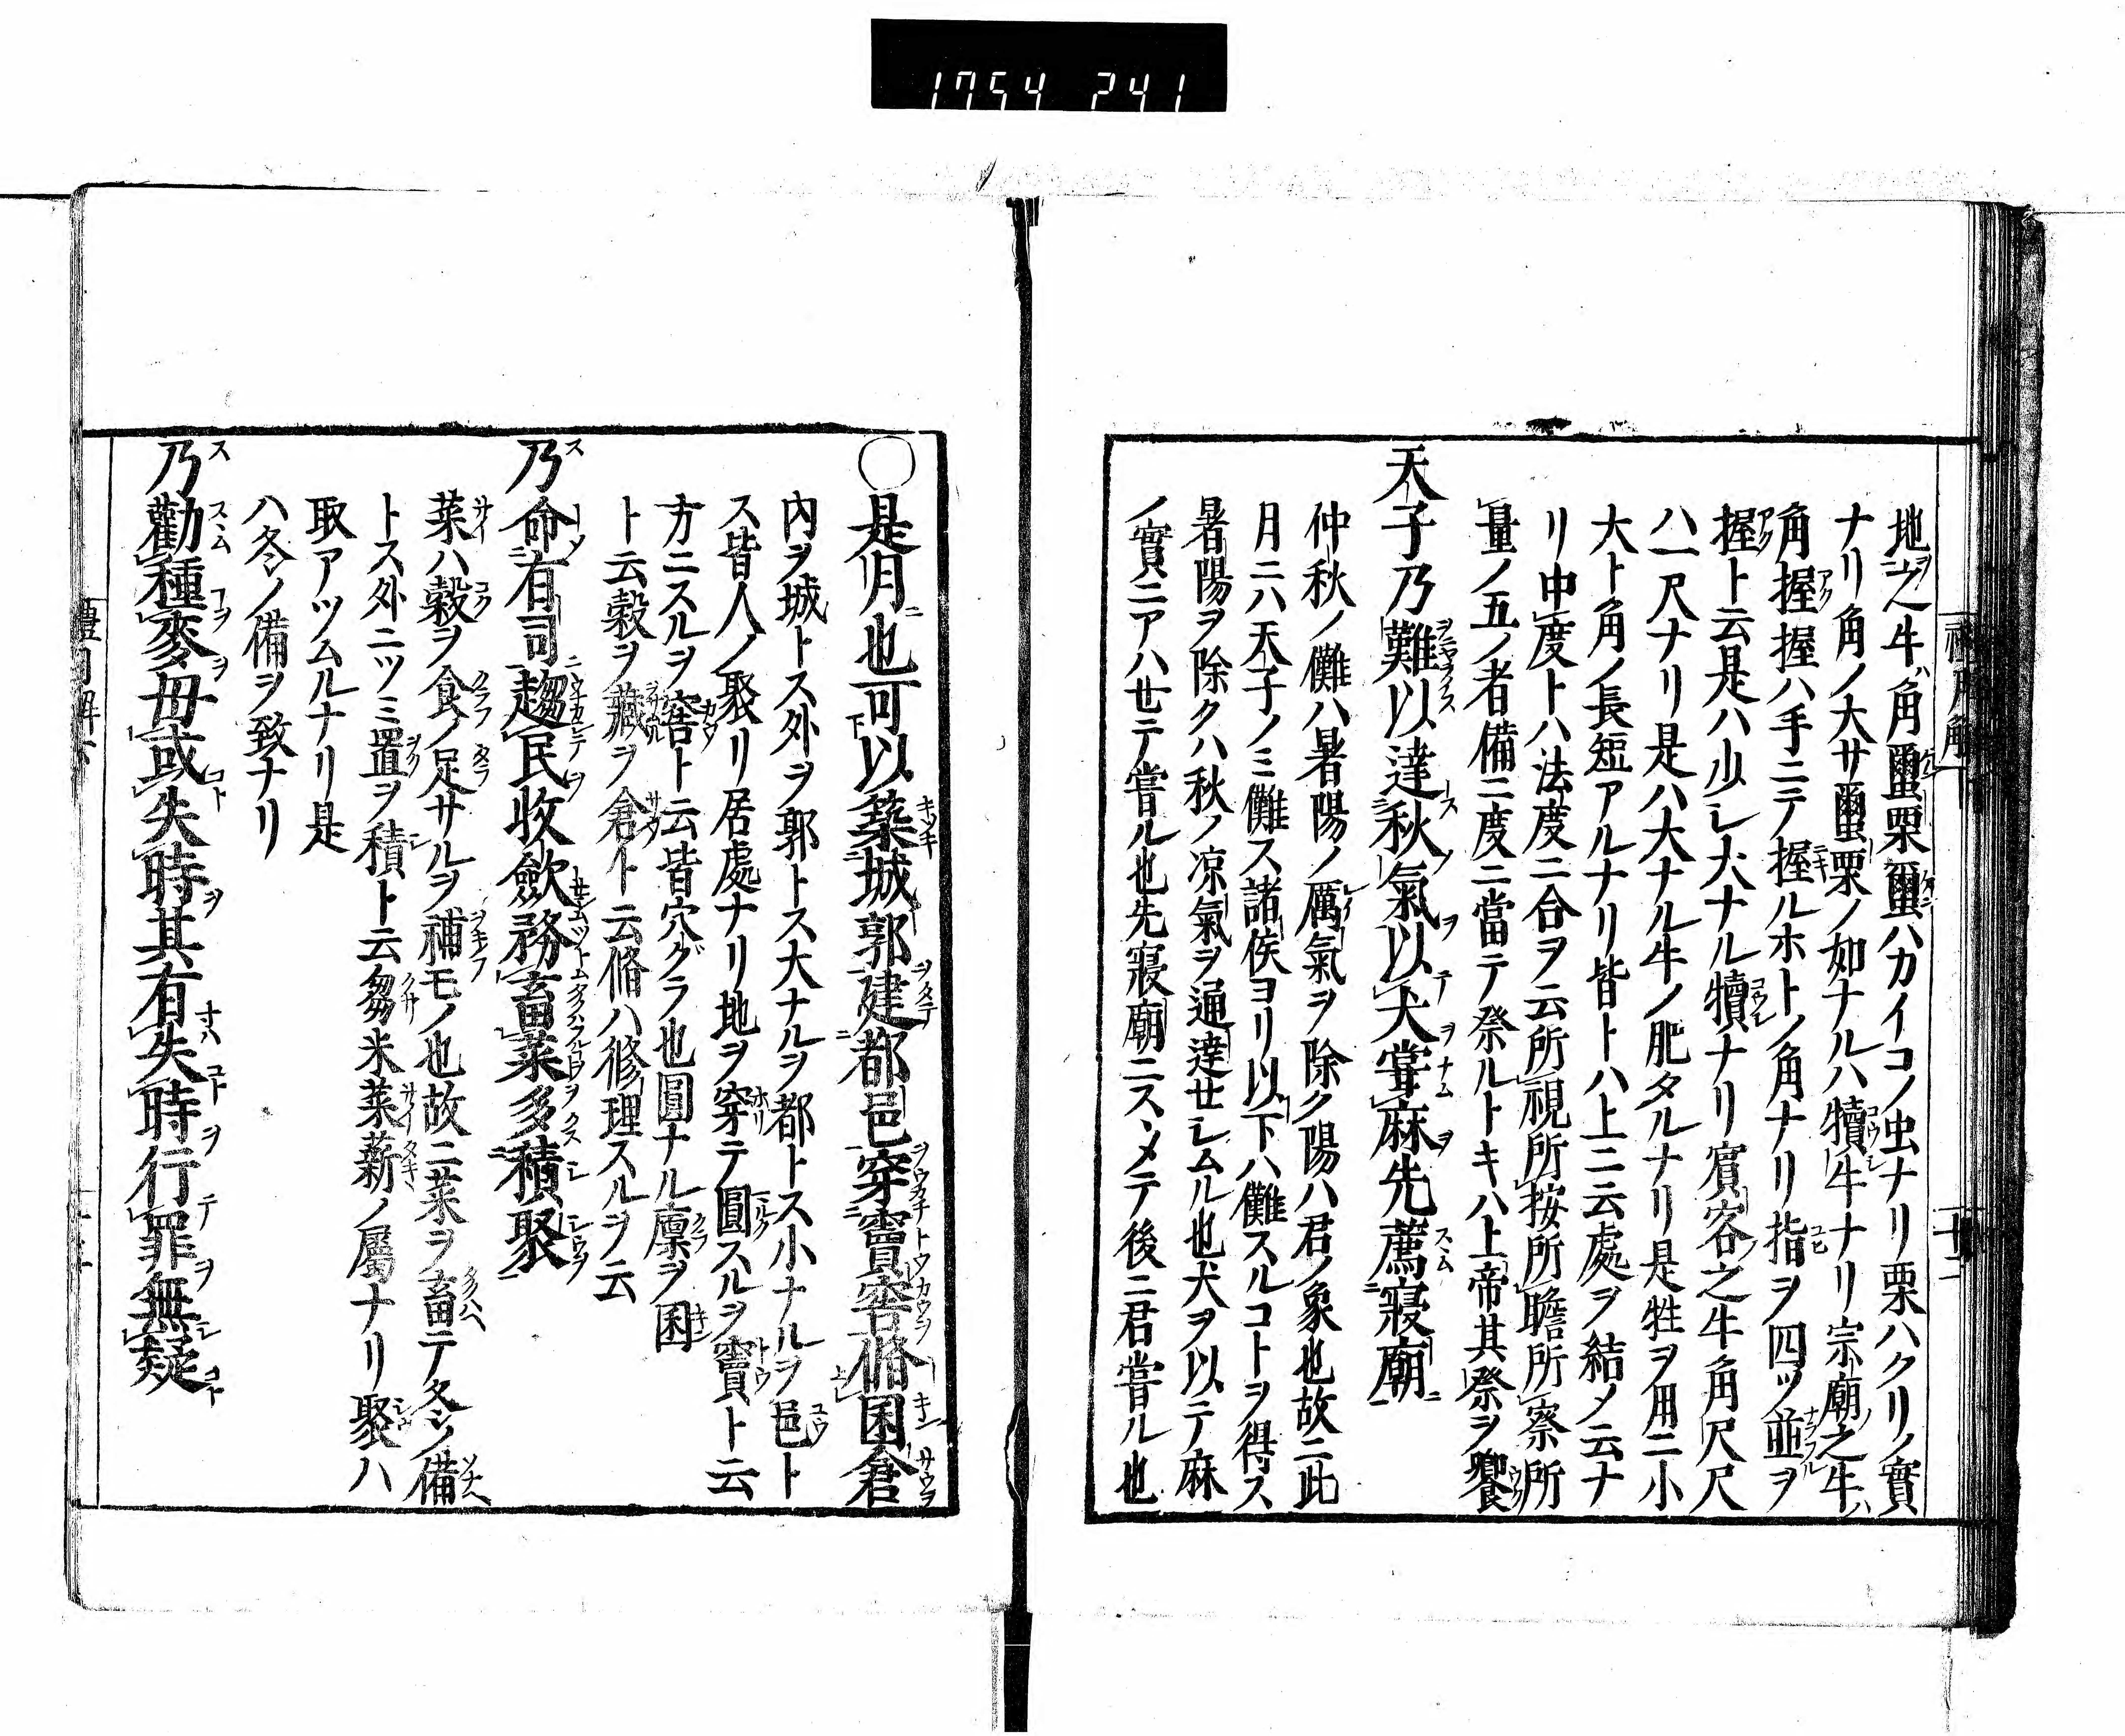 1754 241
地之牛角蠒栗蠒ハカイコノ虫ナリ栗ハクリノ實
ナリ角ノ大サ蠒栗ノ如ナルハ犢牛ナリ宗廟之牛ハ
角握握ハ手ニテ握ルホトノ角ナリ指ヲ四ツ並ヲ
握ト云是ハ少シ大ナル犢ナリ賓客之牛角尺尺
ハ一尺ナリ是ハ大ナル牛ノ肥タルナリ是牲ヲ用ニ小
大ト角ノ長短アルナリ皆トハ上ニ云處ヲ結メ云ナ
リ中度トハ法度ニ合ヲ云所視所按所瞻所察所
量ノ五ノ者備ニ度ニ當テ祭ルトキハ上帝其祭ヲ饗
天子乃難以達秋氣以犬嘗麻先薦寢廟
仲秋ノ儺ハ暑陽ノ厲氣ヲ除ク陽ハ君ノ象也故ニ此
月ニハ天子ノミ儺ス諸侯ヨリ以下ハ儺スルコトヲ得ス
暑陽ヲ除クハ秋ノ凉氣ヲ通達セシムル也犬ヲ以テ麻
ノ實ニアハセテ嘗ル也先寢廟ニスヽメテ後ニ君嘗ル也
〇是月也可以築城郭建都邑穿竇窖脩囷倉
內ヲ城トス外ヲ郭トス大ナルヲ都トス小ナルヲ邑ト
ス皆人ノ聚リ居處ナリ地ヲ穿テ圓スルヲ竇ト云
方ニスルヲ窖ト云皆穴グラ也圓ナル廩ヲ囷
ト云穀ヲ藏ヲ倉ト云脩ハ修理スルヲ云
乃命有司趨民收斂務畜菜多積聚
菜ハ穀ヲ食ノ足サルヲ補モノ也故ニ菜ヲ畜テ冬ノ備
トス外ニツミ置ヲ積ト云芻米菜薪ノ屬ナリ聚ハ
取アツムルナリ是
ハ冬ノ備ヲ致ナリ
乃勸種麥毋或失時其有失時行罪無疑